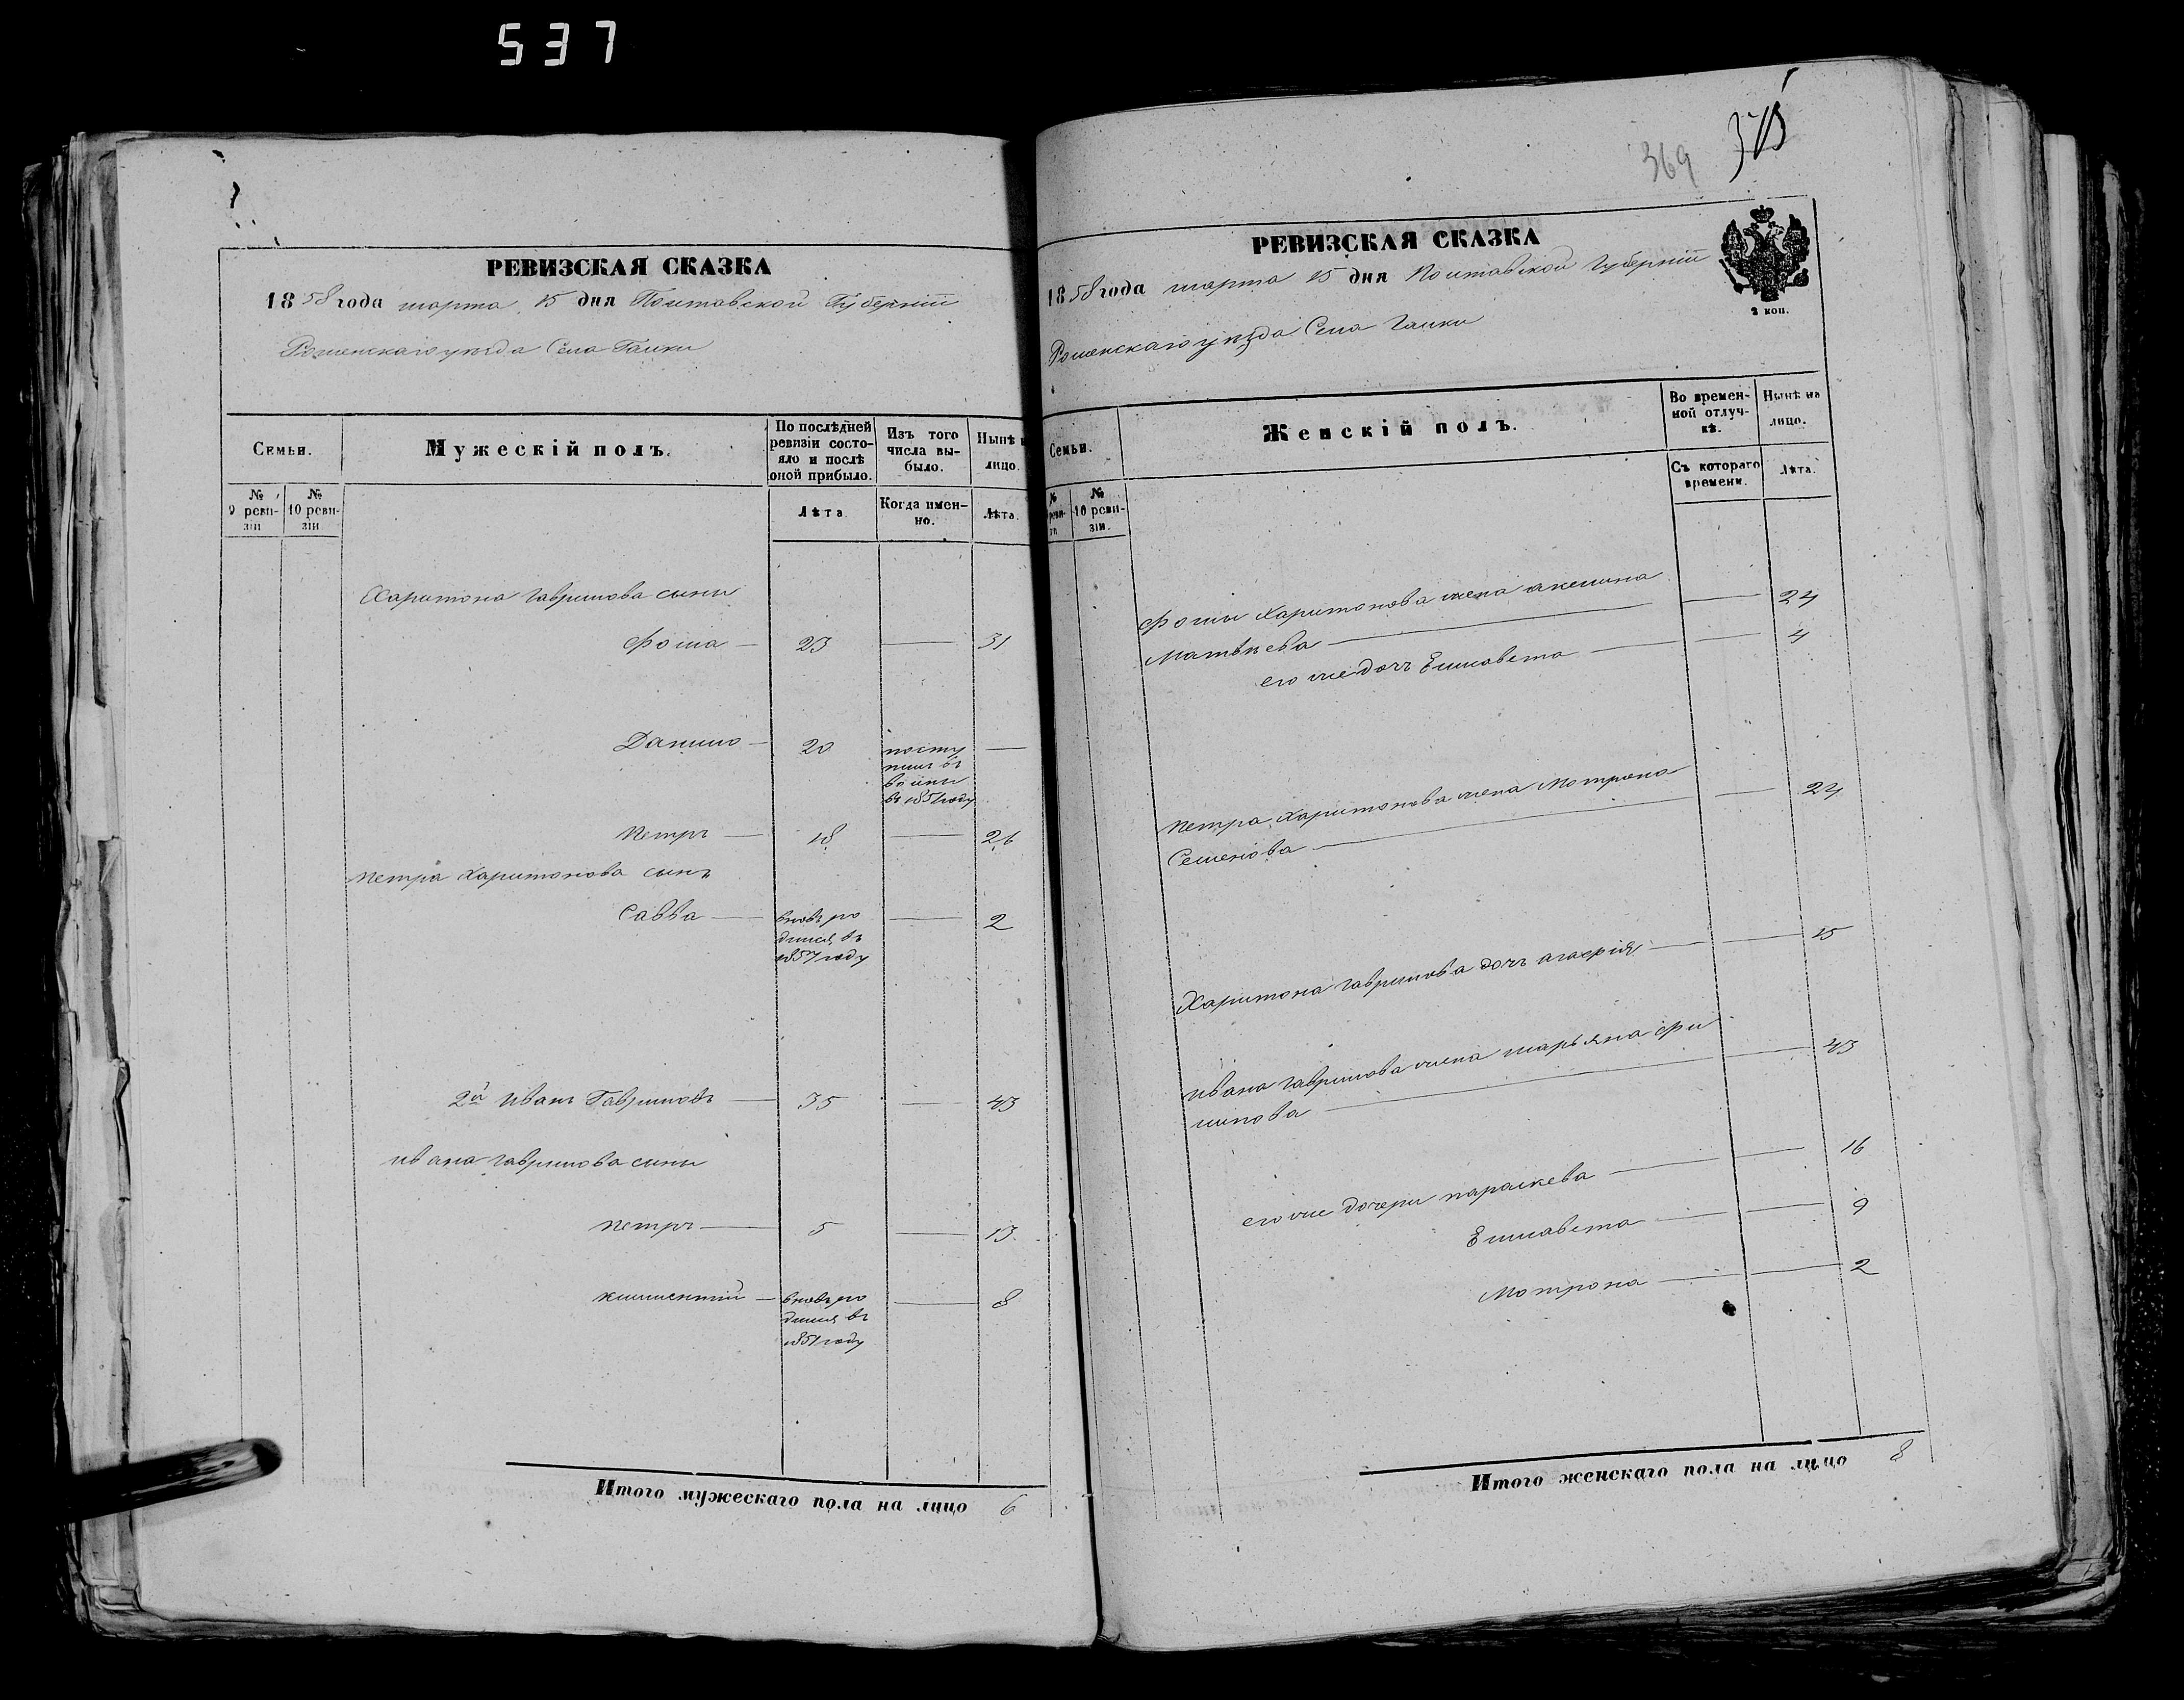 537
РЕВИЗСКАЯ СКАЗКА
1858 года марта 15 дня Полтавской Губерніи
Роменскаго уѣзда Села Галки
Семьи.
Мужескій полъ.
По послѣдней ревизіи состояло и послѣ оной прибыло.
Изъ того числа выбыло.
Нынѣ
лицо.
№ 9 ревизіи
№ 10 ревизіи
Лѣта
Когда именно.
Лѣта.
Харитона Гаврилова сыны
Фома — 23 — 31
Данило — 20 посту
пилъ въ
воины
въ 1851 году —
Петръ — 18 — 26
Петра Харитонова сынъ
Савва — вновь ро — 2
дился въ
1857 году
2й Иванъ Гавриловъ — 35 — 43
Ивана Гаврилова сыны
Петръ — 5 — 13
Климентий — вновь ро — 8
дился въ
1851 году
Итого мужескаго пола на лицо 6
369
РЕВИЗСКАЯ СКАЗКА
1858 года марта 15 дня Полтавской Губерніи
Роменскаго уѣзда Села Галки
2 коп.
Семьи.
Женскій полъ.
Во временной отлучкѣ.
Нынѣ на лицо.
№ 10 ревизіи.
Съ котораго времени.
Лѣта.
Фомы Харитонова жена Акелина
Матвѣева — — 24
его же дочь Елисавета — — 4
Петра Харитонова жена Мотрона
Семенова — — 24
Харитона Гаврилова дочь Агафія — — 15
Ивана Гаврилова жена Марьяна Фи
липова — — 43
его же дочери Параскева — — 16
Елисавета — — 9
Мотрона — — 2
Итого женскаго пола на лицо 8